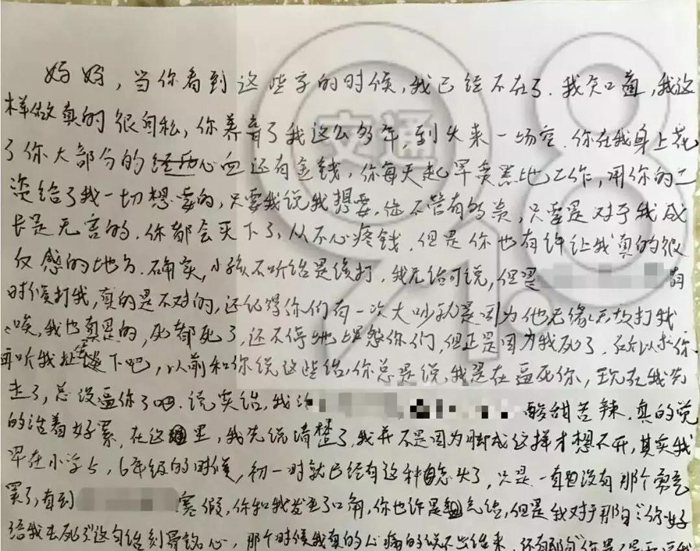 妈妈，当你看到这些字的时候，我已经不在了。我知道，我这
样做真的很自私，你养育了我这么多年，到头来一场空。你在我身上花
了你大部分的心血还有金钱，你每天起早卖黑地工作，用你的工
资给了我一切想要的，只要我说我想要，您不管有多贵，只要是对于我成
长是无害的，你都会买下了，从不心疼钱，但是你也有许让我真的很
反感的地方。确实，小孩不听给是该打，我无给可说，但是 有
时候打我，真的是不对的，还记得你们有一次大吵就是因为他无缘无故打我
唉，我也真是的，死都死了，还不停地埋怨你们，但正是因为我死了，所以求你
再听我 下吧，以前和你说这些给，你总是说，我是在逼死你，现在我先
走了，总没逼你了吧。说实给，我 酸甜苦辣，真的觉
的活着好累，在这里，我先说清楚了，我并不是因为脚成这样才想不开，其实我
早在小学5，6年级的时候，初一时就已经有这种念头了，只是一直没有那个勇气
罢了，直到 寒假，你和我发生了口角，你也许是气给，但是我对于那句“你好
给我去死了”这句给刻骨铭心，那个时候我真的心痛的说不出话来，还有那句